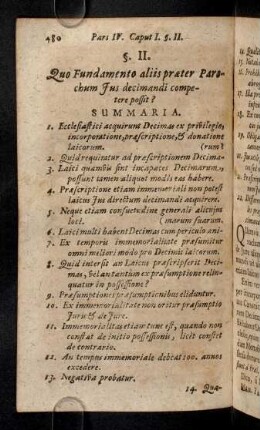 480 Pars IV. Caput I. §. II.
§. II.
Quo Fundamento aliis præter Paro-
chum Jus decimandi compe-
tere possit?
SUMMARIA.
1. Ecclesiastici acquirunt Decimas ex privilegio,
incorporatione, præscriptione, & donatione
laicorum. (rum?
2. Quid requiratur ad præscriptionem Decima-
3. Laici quamvis sint incapaces Decimarum,
possunt tamen aliquot modis eas habere.
4. Præscriptione etiam immemoriali non potest
laicus Jus directum decimandi acquirere.
5. Neque etiam consuetudine generali alicujus
loci. (marum suarum.
6. Laici multi habent Decimas cum periculo ani-
7. Ex temporis immemorialitate præsumitur
omni meliori modo pro Decimis laicorum.
8. Quid intersit an Laicus præscripserit Deci-
mas, vel an tantum ex præsumptione relin-
quatur in possessione?
9. Præsumptiones præsumptionibus eliduntur.
10. Ex immemorialitate non oritur præsumptio
Juris & de Jure.
11. Immemorialitas etiam tunc est, quando non
constat de initio possessionis, licet constet
de contrario.
12. An tempus immemoriale debeat 100. annos
excedere.
13. Negativa probatur.
14. Qua-